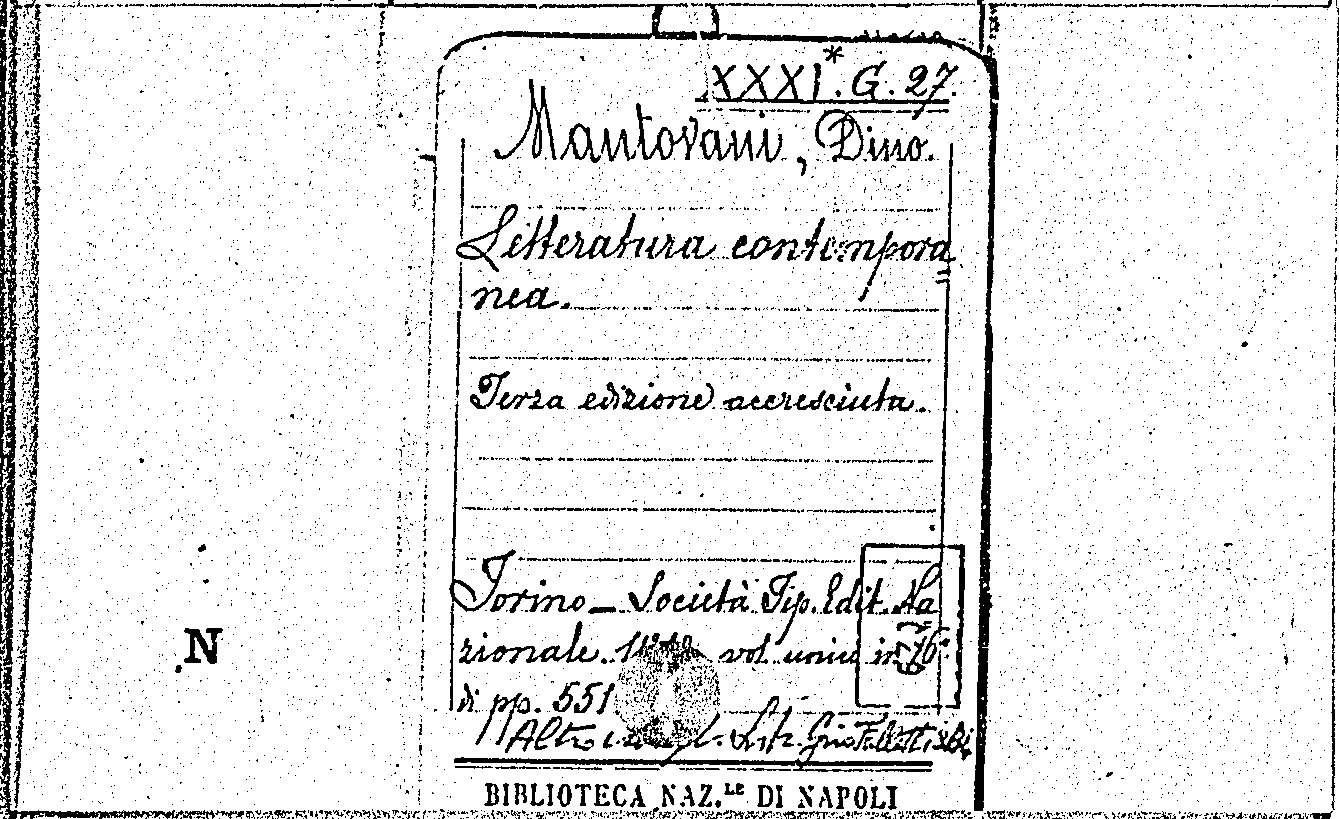 XXXI*. G. 27.
Mantovani, Dino.
Letteratura contempora
nea.
Terza edizione accresciuta.
Torino _ Società Tip. Edit. Na
zionale. vol. unic in 16°.
di pp. 551
Altro
N
BIBLIOTECA NAZ.LE DI NAPOLI